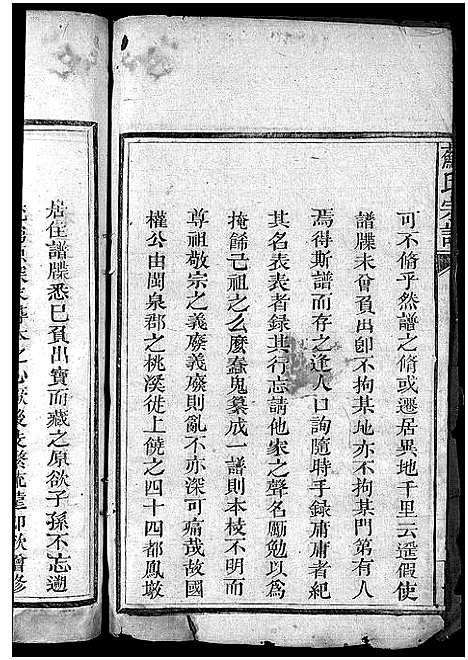 蘇氏宗譜
可不脩乎然譜之脩或遷居異地千里云遥假使
譜牒未曾負出卽不拘某地亦不拘某門第有人
焉得斯譜而存之逢人口詢隨時手録庸庸者紀
其名表表者録其行忘請他家之聲名勵勉以爲
掩飾己祖之么麼蠢鬼纂成一譜則本枝不明而
尊祖敬宗之義廢義廢則亂不亦深可痛哉故國
權公由閩泉郡之桃溪徙上饒之四十四都鳳墩
居住譜牒悉已負出寶而藏之原欲子孫不忘遡
本之心厥後支繁